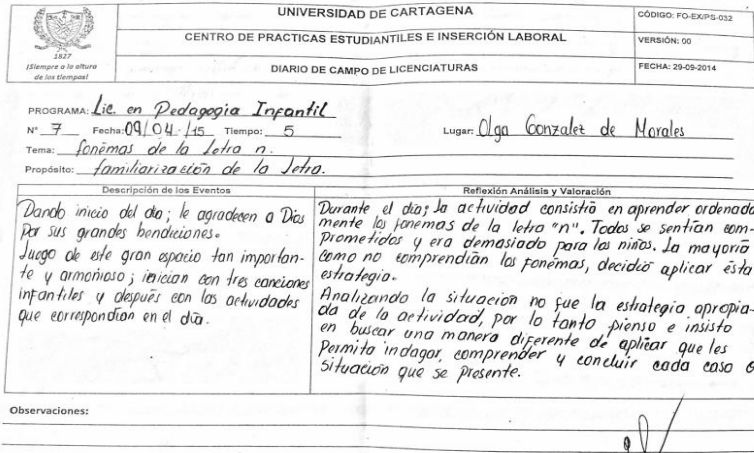 UNIVERSIDAD DE CARTAGENA
CÓDIGO: FO-EX/PS-032
CENTRO DE PRACTICAS ESTUDIANTILES E INSERCIÓN LABORAL
VERSIÓN: 00
1827
¡Siempre a la altura
de los tiempos!
DIARIO DE CAMPO DE LICENCIATURAS
FECHA: 29-09-2014
PROGRAMA: Lic. en Pedagogia Infantil
N° 7 Fecha: 09/04/15 Tiempo: 5 Lugar: Olga Gonzalez de Morales
Tema: fonémas de la letra n.
Propósito: familiarización de la letra.
Descripción de los Eventos
Dando inicio del dia; le agradecen a Dios
Por sus grandes bendiciones.
Luego de este gran espacio tan importan-
te y armonioso; inician con tres canciones
infantiles y después con las actividades
que correspondían en el día.
Reflexión Análisis y Valoración
Durante el día; la actividad consistió en aprender ordenada
mente los fonemas de la letra "n". Todos se sentían com-
prometidos y era demasiado para los niños. La mayoría
como no comprendían los fonémas, decidió aplicar ésta
estrategia.
Analizando la situación no fue la estrategia apropia-
da de la actividad, por lo tanto pienso e insisto
en buscar una manera diferente de aplicar que les
Permita indagar, comprender y concluir cada caso o
situación que se presente.
Observaciones: